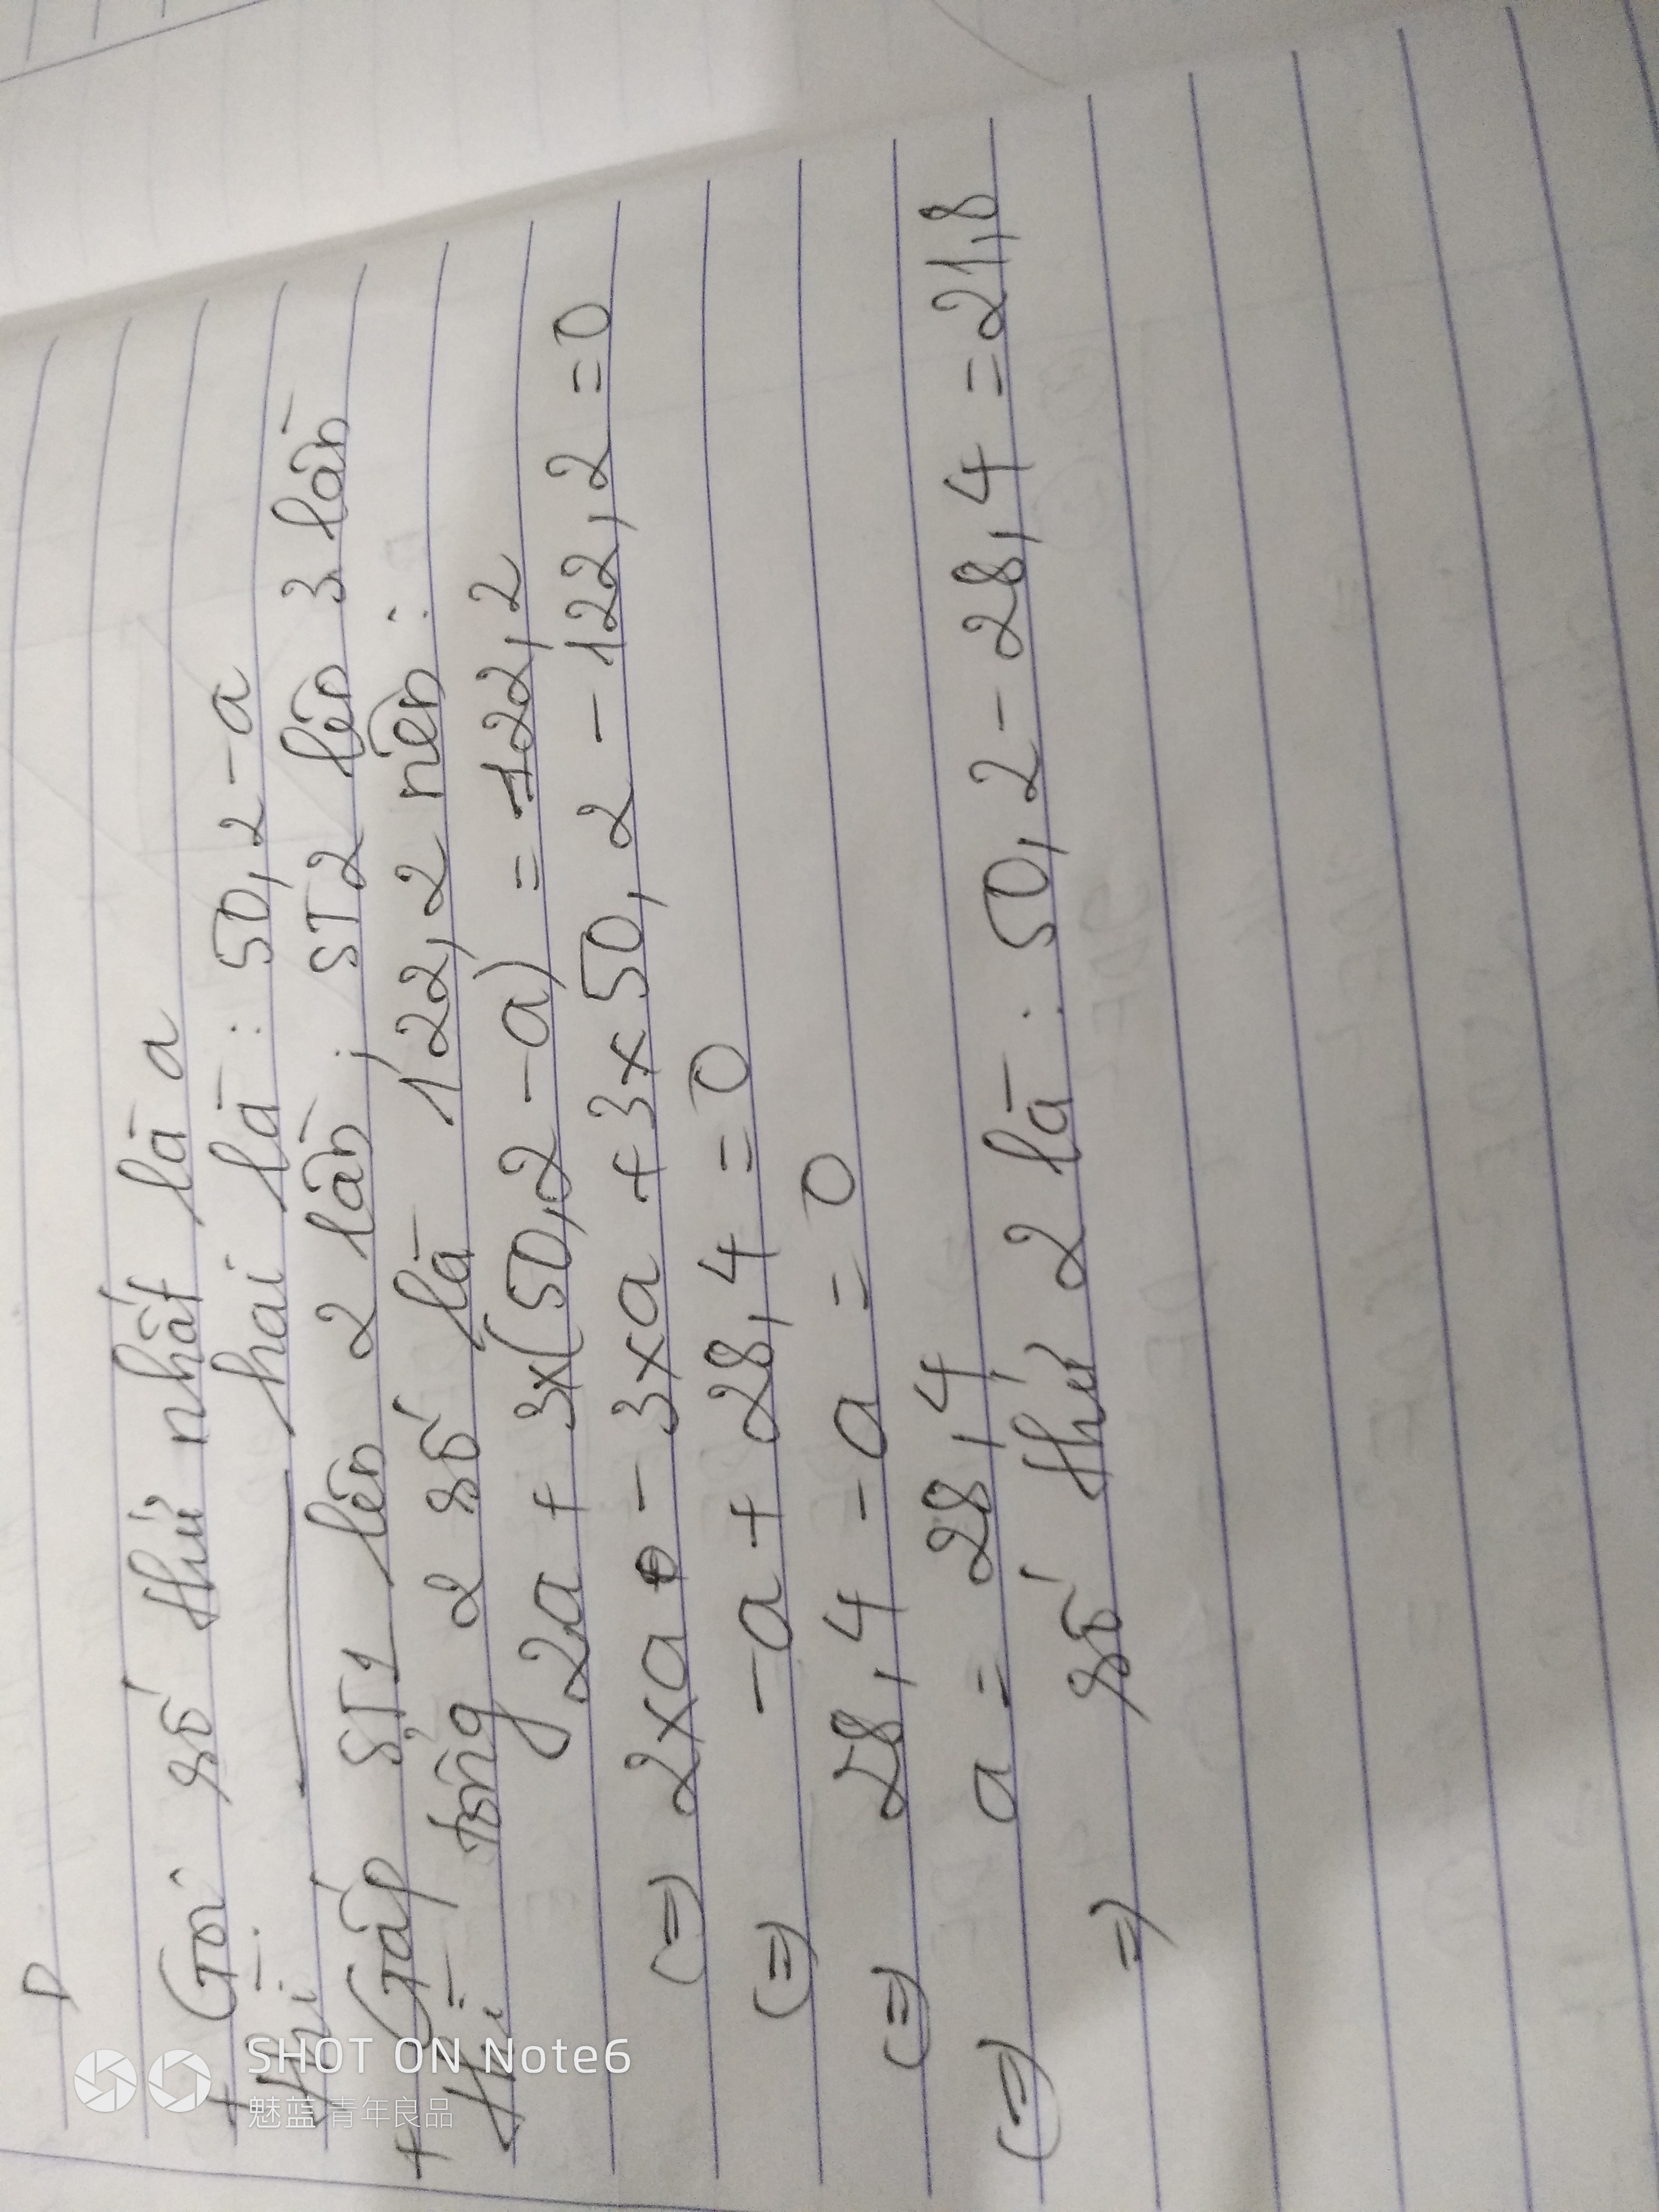 + Gọi số thứ nhất là a
thì ——— hai là : 50,2 - a
+ Gấp ST1 lên 2 lần ; ST2 lên 3 lần
thì tổng 2 số là 122,2 nên :
2a + 3x(50,2 - a) = 122,2
(=) 2xa - 3xa + 3x50,2 - 122,2 = 0
(=) -a + 28,4 = 0
(=) 28,4 - a = 0
(=) a = 28,4
=) số thứ 2 là : 50,2 - 28,4 = 21,8
SHOT ON Note6
魅蓝 青年良品